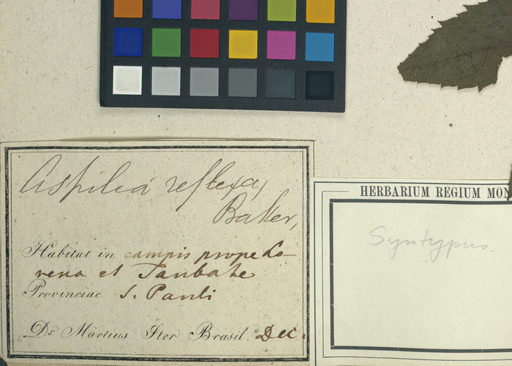 Aspilia reflexa,
Baker,
Habitat in campis prope Lo-
rena et Taubate
Provinciae S. Pauli
Dr Martius Iter Brasil. Dec.
HERBARIUM REGIUM MON
Syntypus.